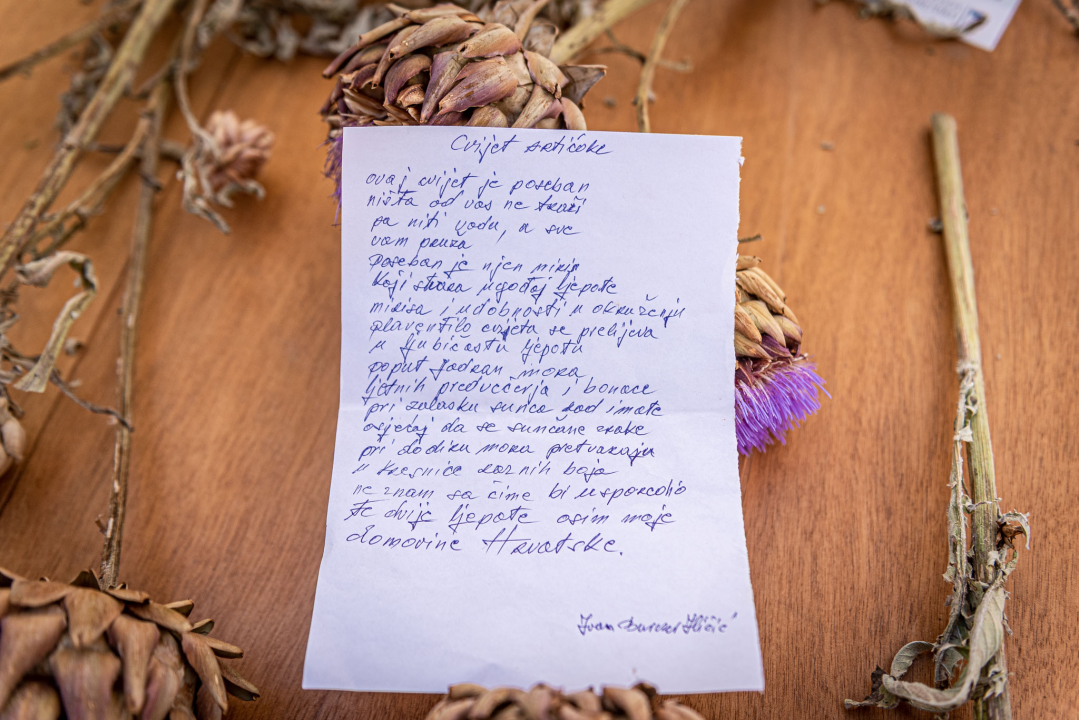 Cvijet artičoke
ovaj cvijet je poseban
ništa od vas ne traži
pa niti vodu, a sve
vam pruža
poseban je njen miris
koji stvara ugođaj ljepote
mirisa i udobnosti u okruženju
plavetnilo cvijeta se prelijeva
u ljubičastu ljepotu
poput Jadran mora
ljetnih predvečerja i bonace
pri zalasku sunca kad imate
osjećaj da se sunčane zrake
pri dodiru mora pretvaraju
u kresnice raznih boja
ne znam sa čime bi usporedio
te dvije ljepote osim moje
domovine Hrvatske.
Ivan